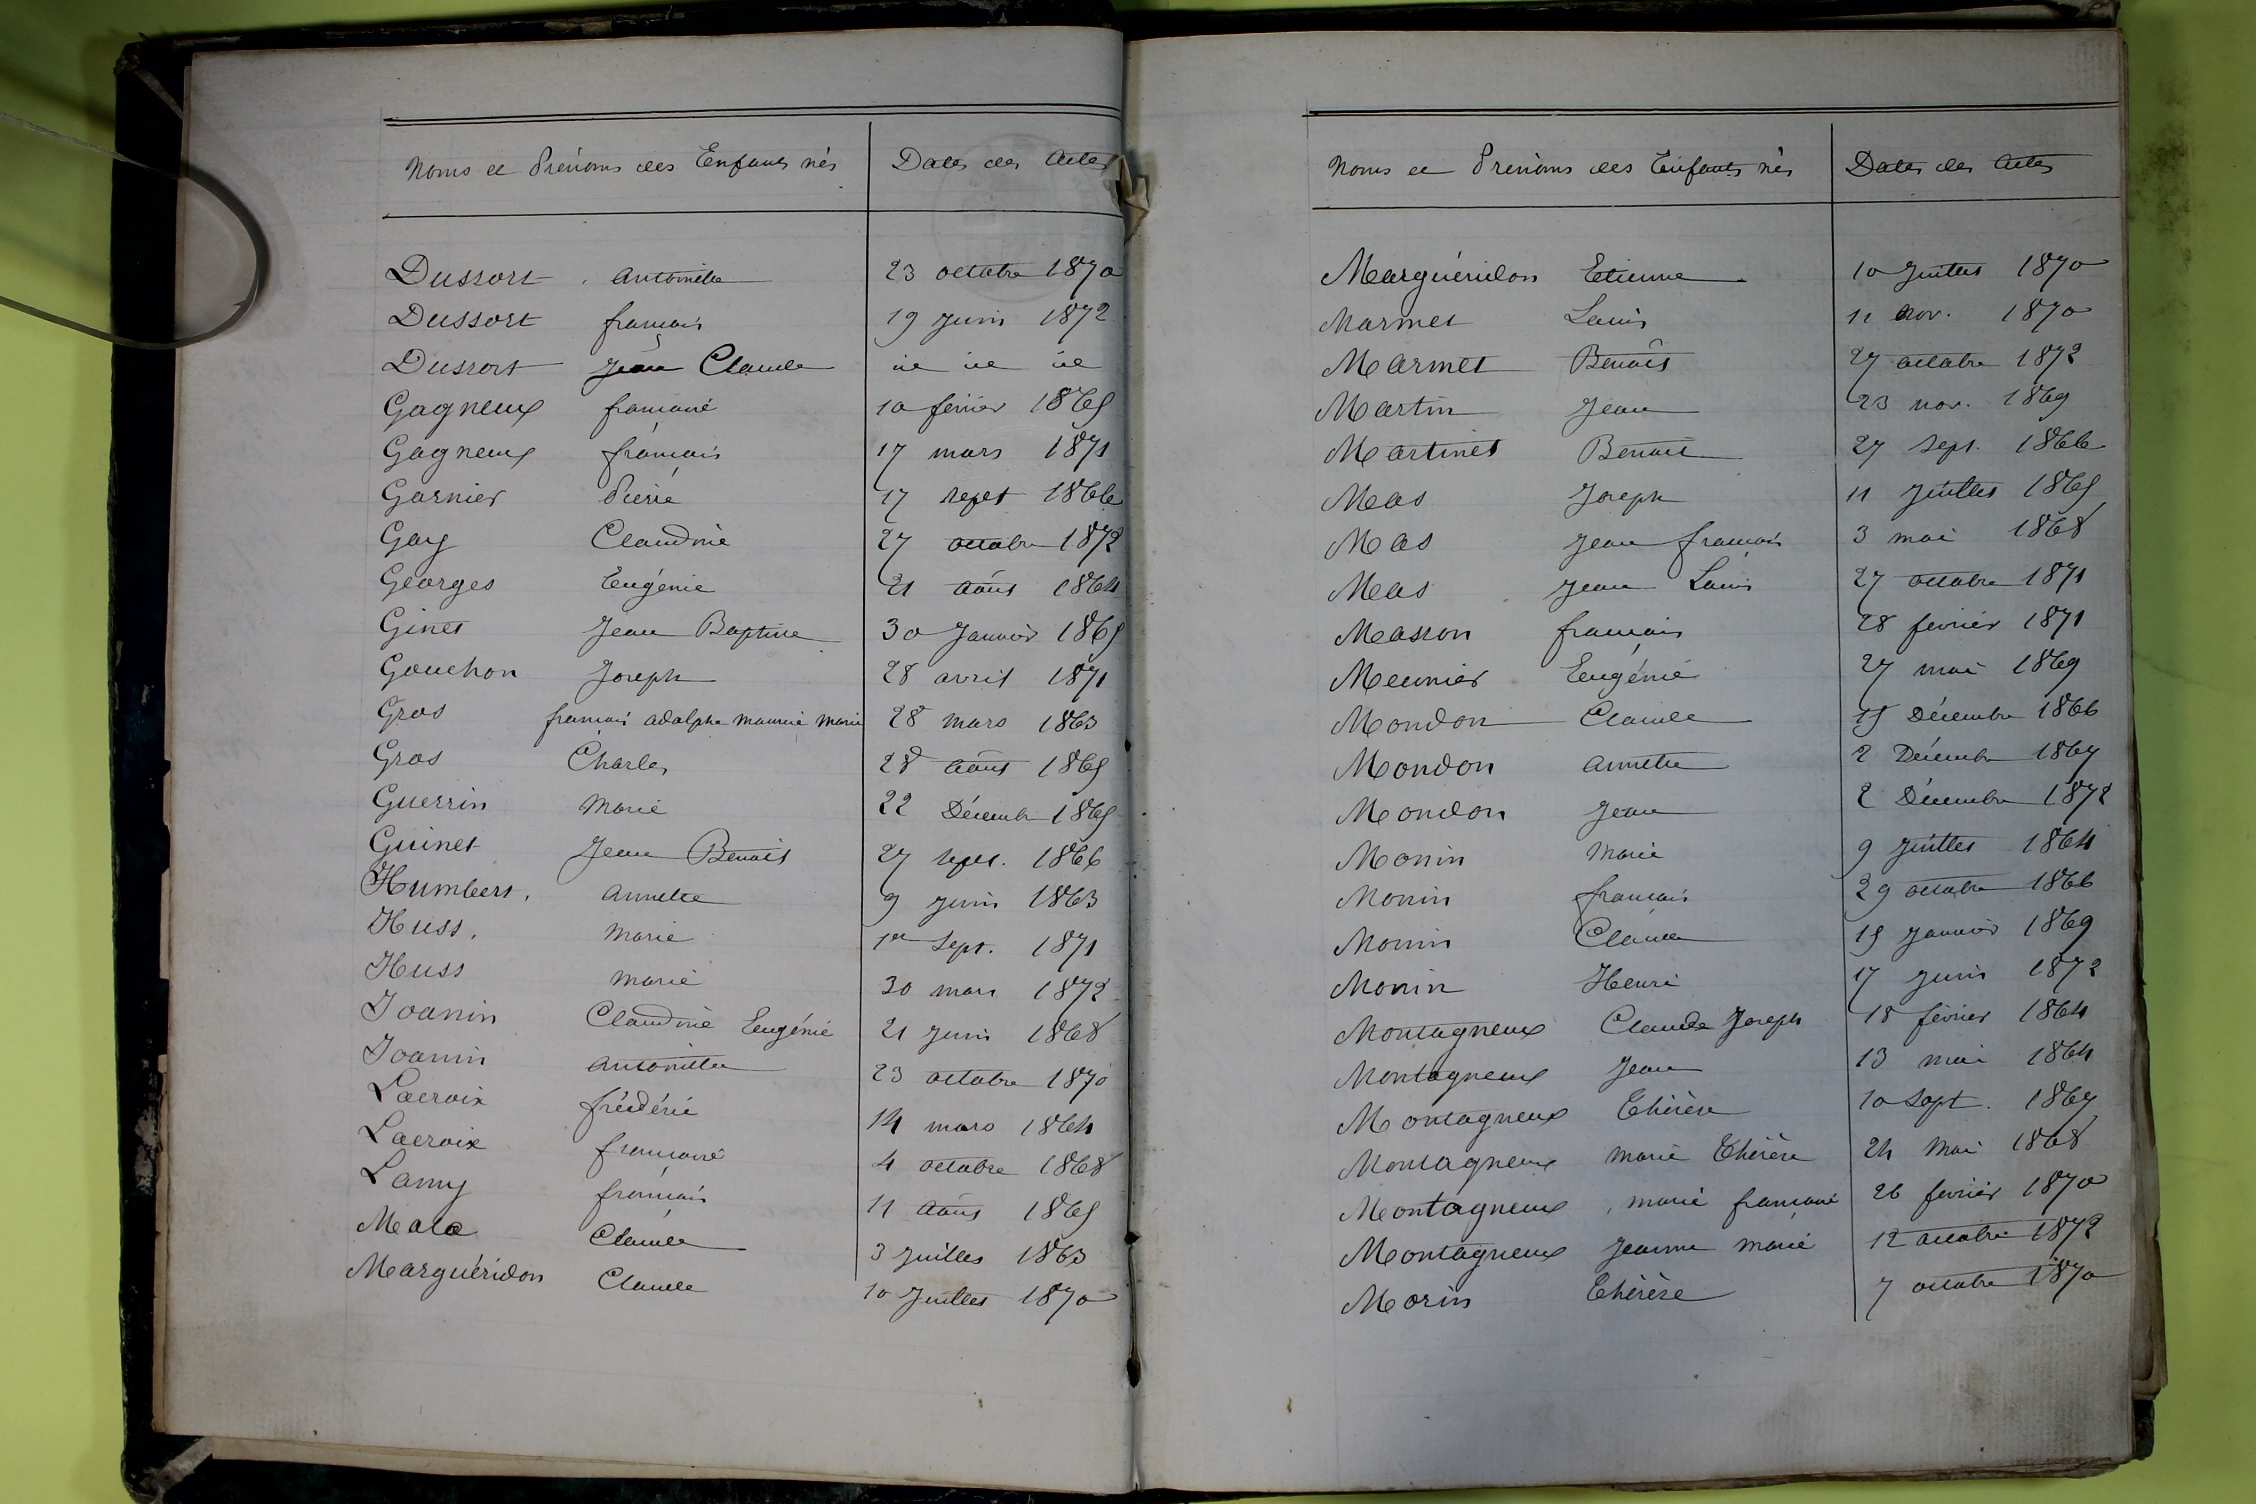 Noms et Prénoms des Enfants nés Dates des Actes
Dussort Antoinette 23 octobre 1870
Dussort françois 19 Juin 1872
Dussort Jean Claude id id id
Gagneux françoise 10 février 1865
Gagneux françois 17 mars 1871
Garnier Pierre 17 sept 1866
Gay Claudine 27 octobre 1872
Georges Eugénie 21 Août 1864
Ginet Jean Baptiste 30 Janvier 1865
Gouchon Joseph 28 avril 1871
Gros françois adolphe maurice marie 28 mars 1863
Gros Charles 28 Août 1865
Guerrin Marie 22 Décembre 1865
Guinet Jean Benoit 27 sept. 1866
Humbert. annette 9 Juin 1863
Huss. Marie 1er Sept. 1871
Huss Marie 30 mars 1872
Joanin Claudine Eugénie 21 Juin 1868
Joanin antoinette 23 octobre 1870
Lacroix frédéric 14 mars 1864
Lacroix françoise 4 octobre 1868
Lamy françois 11 Août 1865
Claude 3 Juillet 1863
Marguéridon Claude 10 Juillet 1870
Noms et Prénoms des Enfants nés Dates des Actes
Marguéridon Etienne 10 Juillet 1870
Marmet Louis 11 Nov. 1870
Marmet Benoît 27 octobre 1872
Martin Jean 23 nov. 1869
Martinet Benoit 27 Sept. 1866
Mas Joseph 11 Juillet 1865
Mas Jean françois 3 mai 1868
Mas Jean Louis 27 octobre 1871
Masson françois 28 février 1871
Meunier Eugénie 27 mai 1869
Mondon Claude 15 Décembre 1866
Mondon annette 2 Décembre 1867
Mondon Jean 2 Décembre 1872
Monin Marie 9 Juillet 1864
Monin françois 29 octobre 1866
Monin Claude 15 Janvier 1869
Monin Henri 17 Juin 1872
Montagneux Claude Joseph 18 février 1864
Montagneux Jean 13 mai 1864
Montagneux Thérèse 10 Sept. 1867
Montagneux Marie Thérèse 24 Mai 1868
Montagneux, marie françoise 26 février 1870
Montagneux Jeanne marie 12 octobre 1872
Morin Thérèse 7 octobre 1870